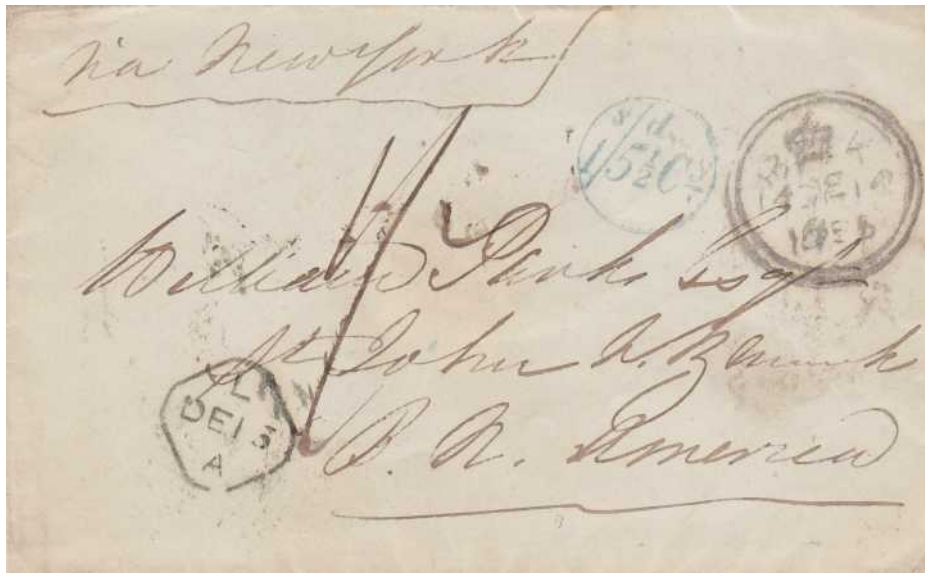 via New York
s/ d.
1/5½ Cy
1/2
William Parks Esqr
St John N. Brunswick
B. N. America
L
DE 13
A